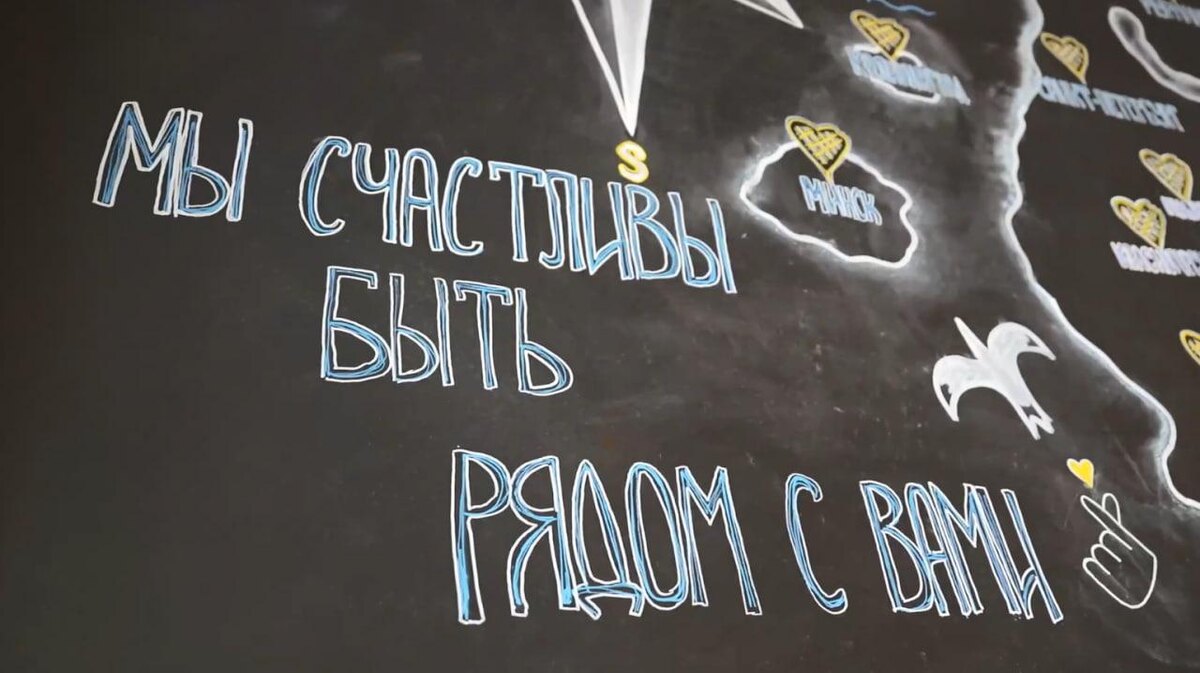 S
МИНСК
САНКТ-ПЕТЕРБУРГ
МЫ СЧАСТЛИВЫ
БЫТЬ
РЯДОМ С ВАМИ